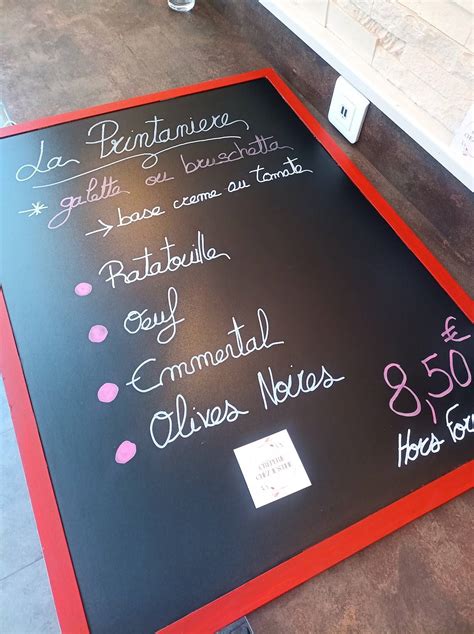 La Printaniere
* galette ou bruschetta
→ base creme ou tomate
• Ratatouille
• Oeuf
• Emmental
• Olives Noires
8,50€
Hors For